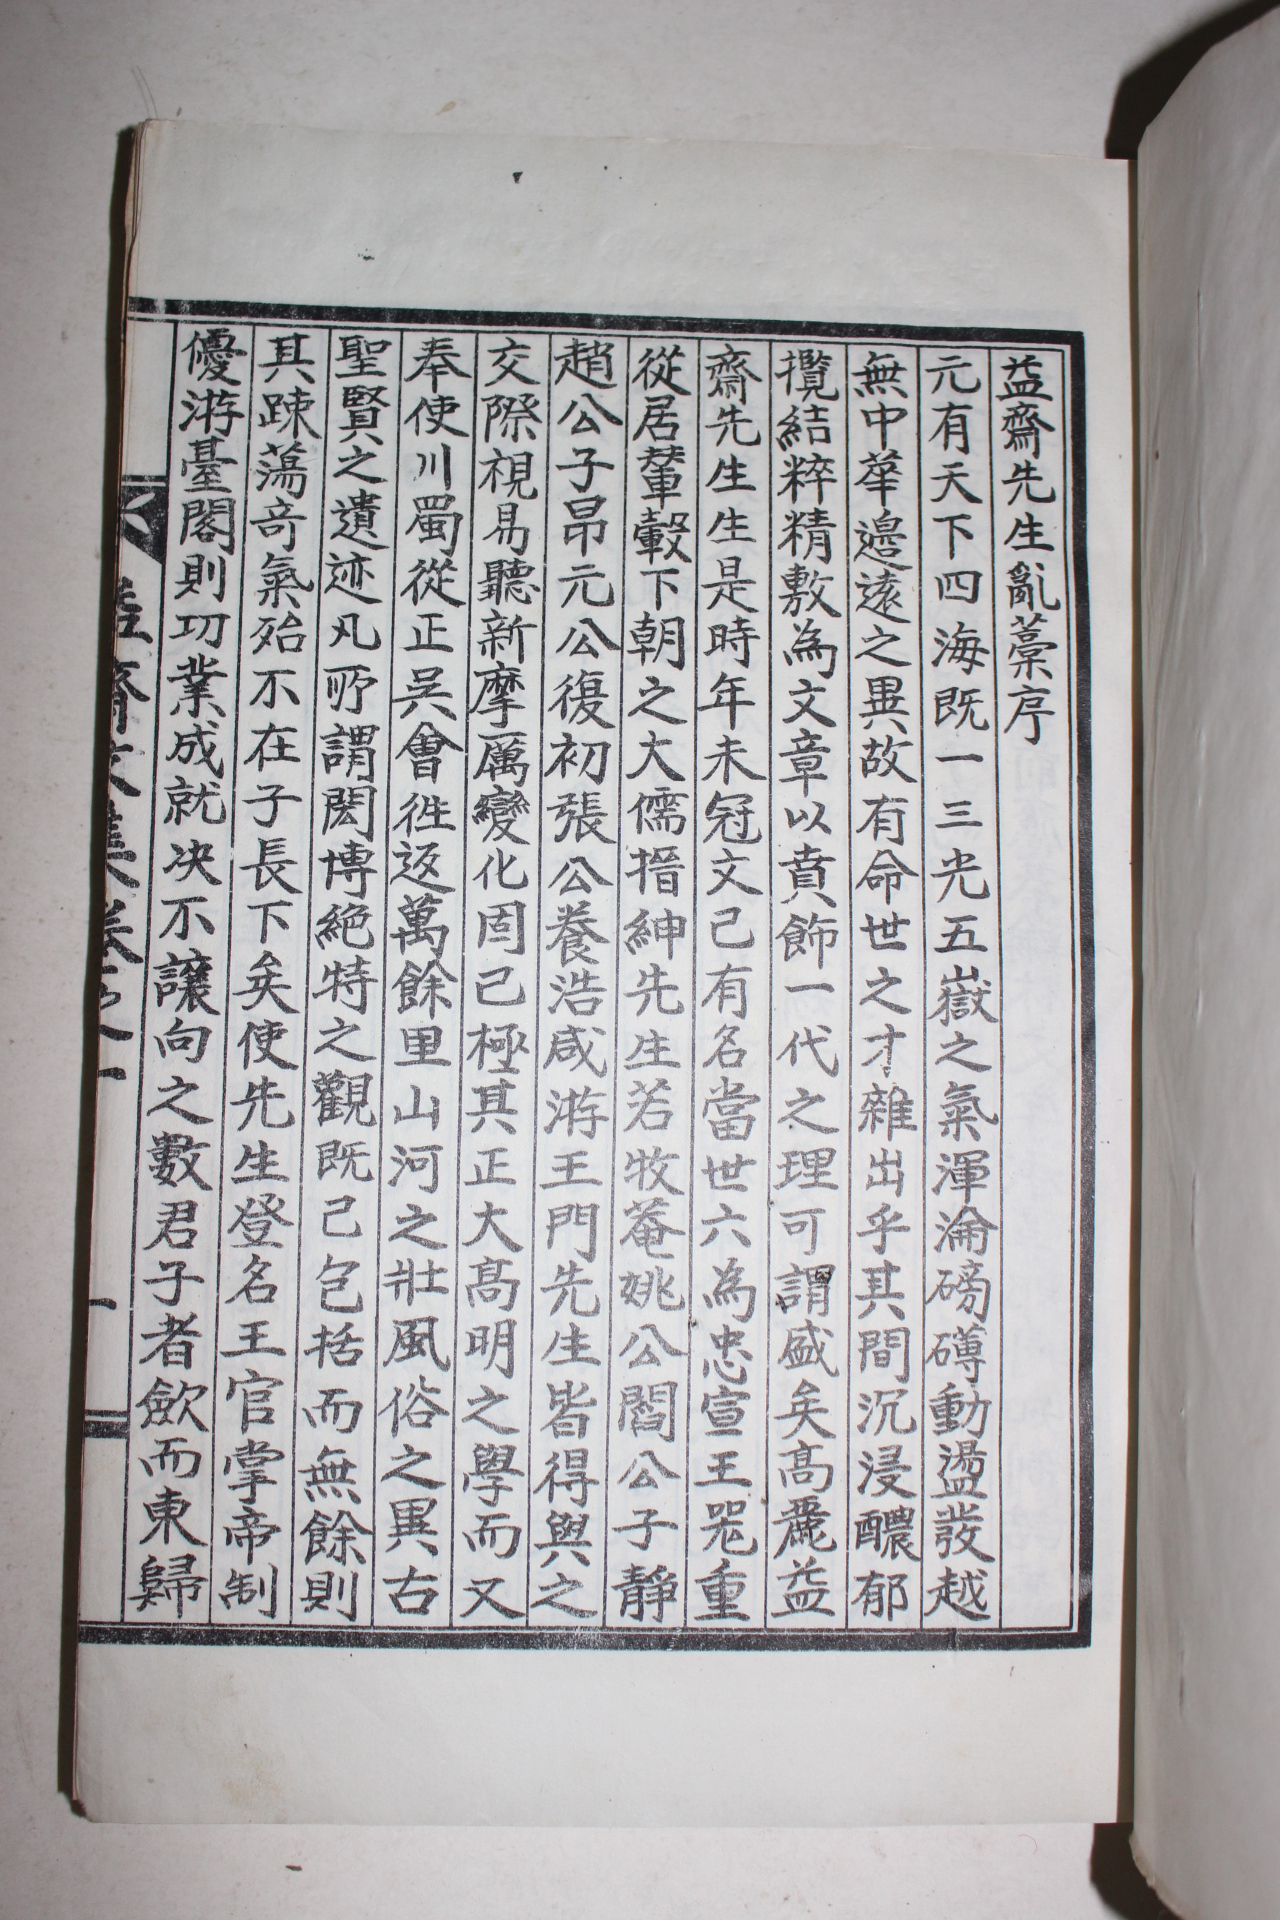 益齋先生亂藁序
元有天下四海既一三光五嶽之氣渾淪磅礴動盪發越
無中華邊遠之異故有命世之才雜出乎其間沉浸醲郁
攬結粹精敷為文章以賁飾一代之理可謂盛矣高麗益
齋先生生是時年未冠文已有名當世六為忠宣王器重
從居輦轂下朝之大儒搢紳先生若牧菴姚公閻公子靜
趙公子昂元公復初張公養浩咸游王門先生皆得與之
交際視易聽新摩厲變化固已極其正大高明之學而又
奉使川蜀從正吳會徃返萬餘里山河之壯風俗之異古
聖賢之遺迹凡所謂閎博絕特之觀既已包括而無餘則
其踈蕩奇氣殆不在子長下矣使先生登名王官掌帝制
優游臺閣則功業成就决不讓向之數君子者歛而東歸
益齋文集卷之一
一